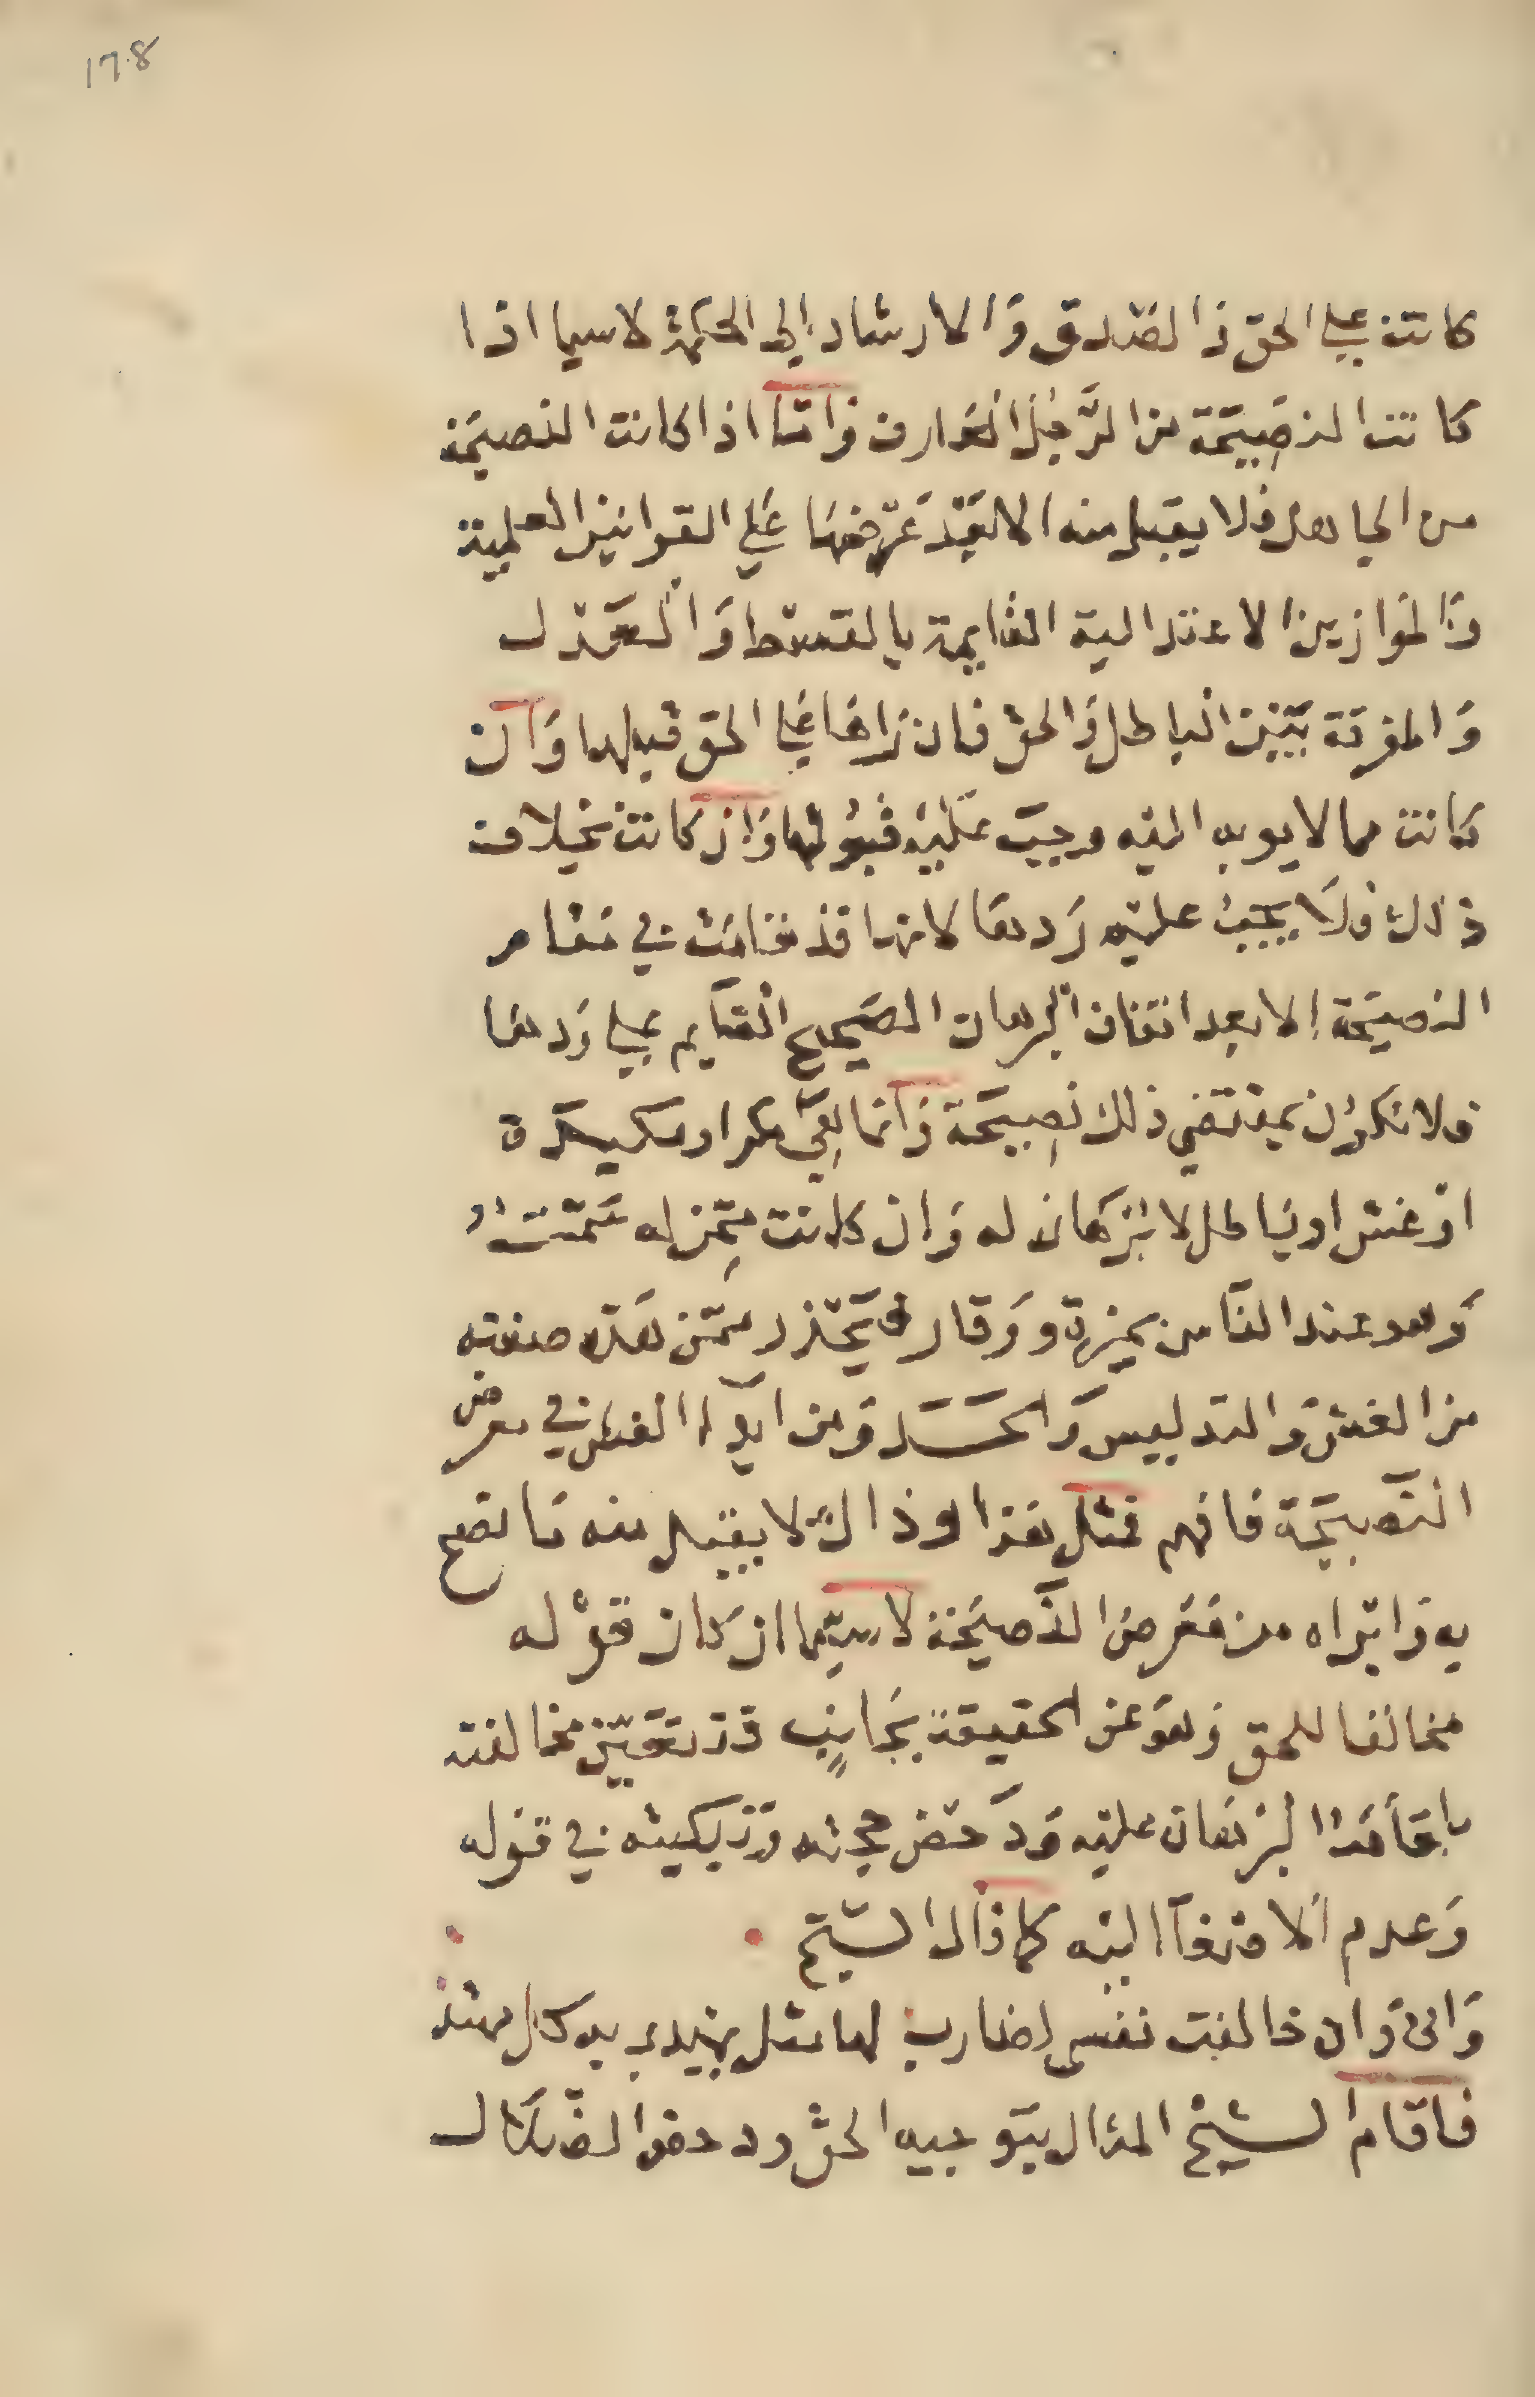 178
كانت على الحق والصدق والارشاد إلى الحكمة لا سيما اذا
كانت النصيحة من الرَّجُل العارف وَامّا اذا كانت النصيحة
من الجاهل فلا يقبل منه الا بَعْد عَرْضهَا عَلى القوانين العلمية
وَالموازين الاعتدالية القايمة بالقسْط وَالْعَدْل
وَالمفرقة بَيْنَ الْباطل وَالحق فان رَاهَا عَلى الحق قبلها وَان
كانت مما لا يوبه اليْه وجبَ عَلَيْه قبُولها وَان كانت بخلاف
ذلك فلَا يجبُ عليْه رَدهَا لانها قدْ قامَتْ في مَقام
النصيَحة الا بعد اتقان الْبرهان الصَحيح الْقَايم على رَدها
فلا تكون بمقتضي ذلك نصِيحَة وَانما هِيَ مكر اومكيدَة
اوْ غش او بَاطل لا بُرْهَان له وَان كانت مِمَّن له سَمْتٌ
وَهو عند النَّاس بميزة ووَقار فيَحْذر ممَّن هَذه صفته
من الغش وَالتدليس وَالحسَد وَمن ابدَاء الغش في معرض
النَّصيحَة فافهم فمثل هَذا وذاكَ لا يقبل منه مَا نصح
به وَابْداه من مَعْرض النَّصيحَة لا سيّما ان كان قوْله
مخالفا للحق وَهوَ عن الحقيقة بجَانِبٍ قد تعَيّن مخالفته
باقَامَة الْبُرْهَان عليْه وَدَحْض حجته وَتبكيته في قوله
وَعدم الاصْغآ اليْه كما قال الشيْخ
وَانى وَان خالفت نفسي لضارب لها مثل يهدي به كل مهتد
فاقام الشيخ المثال بتوجيه الحق ودحض الضّلَال